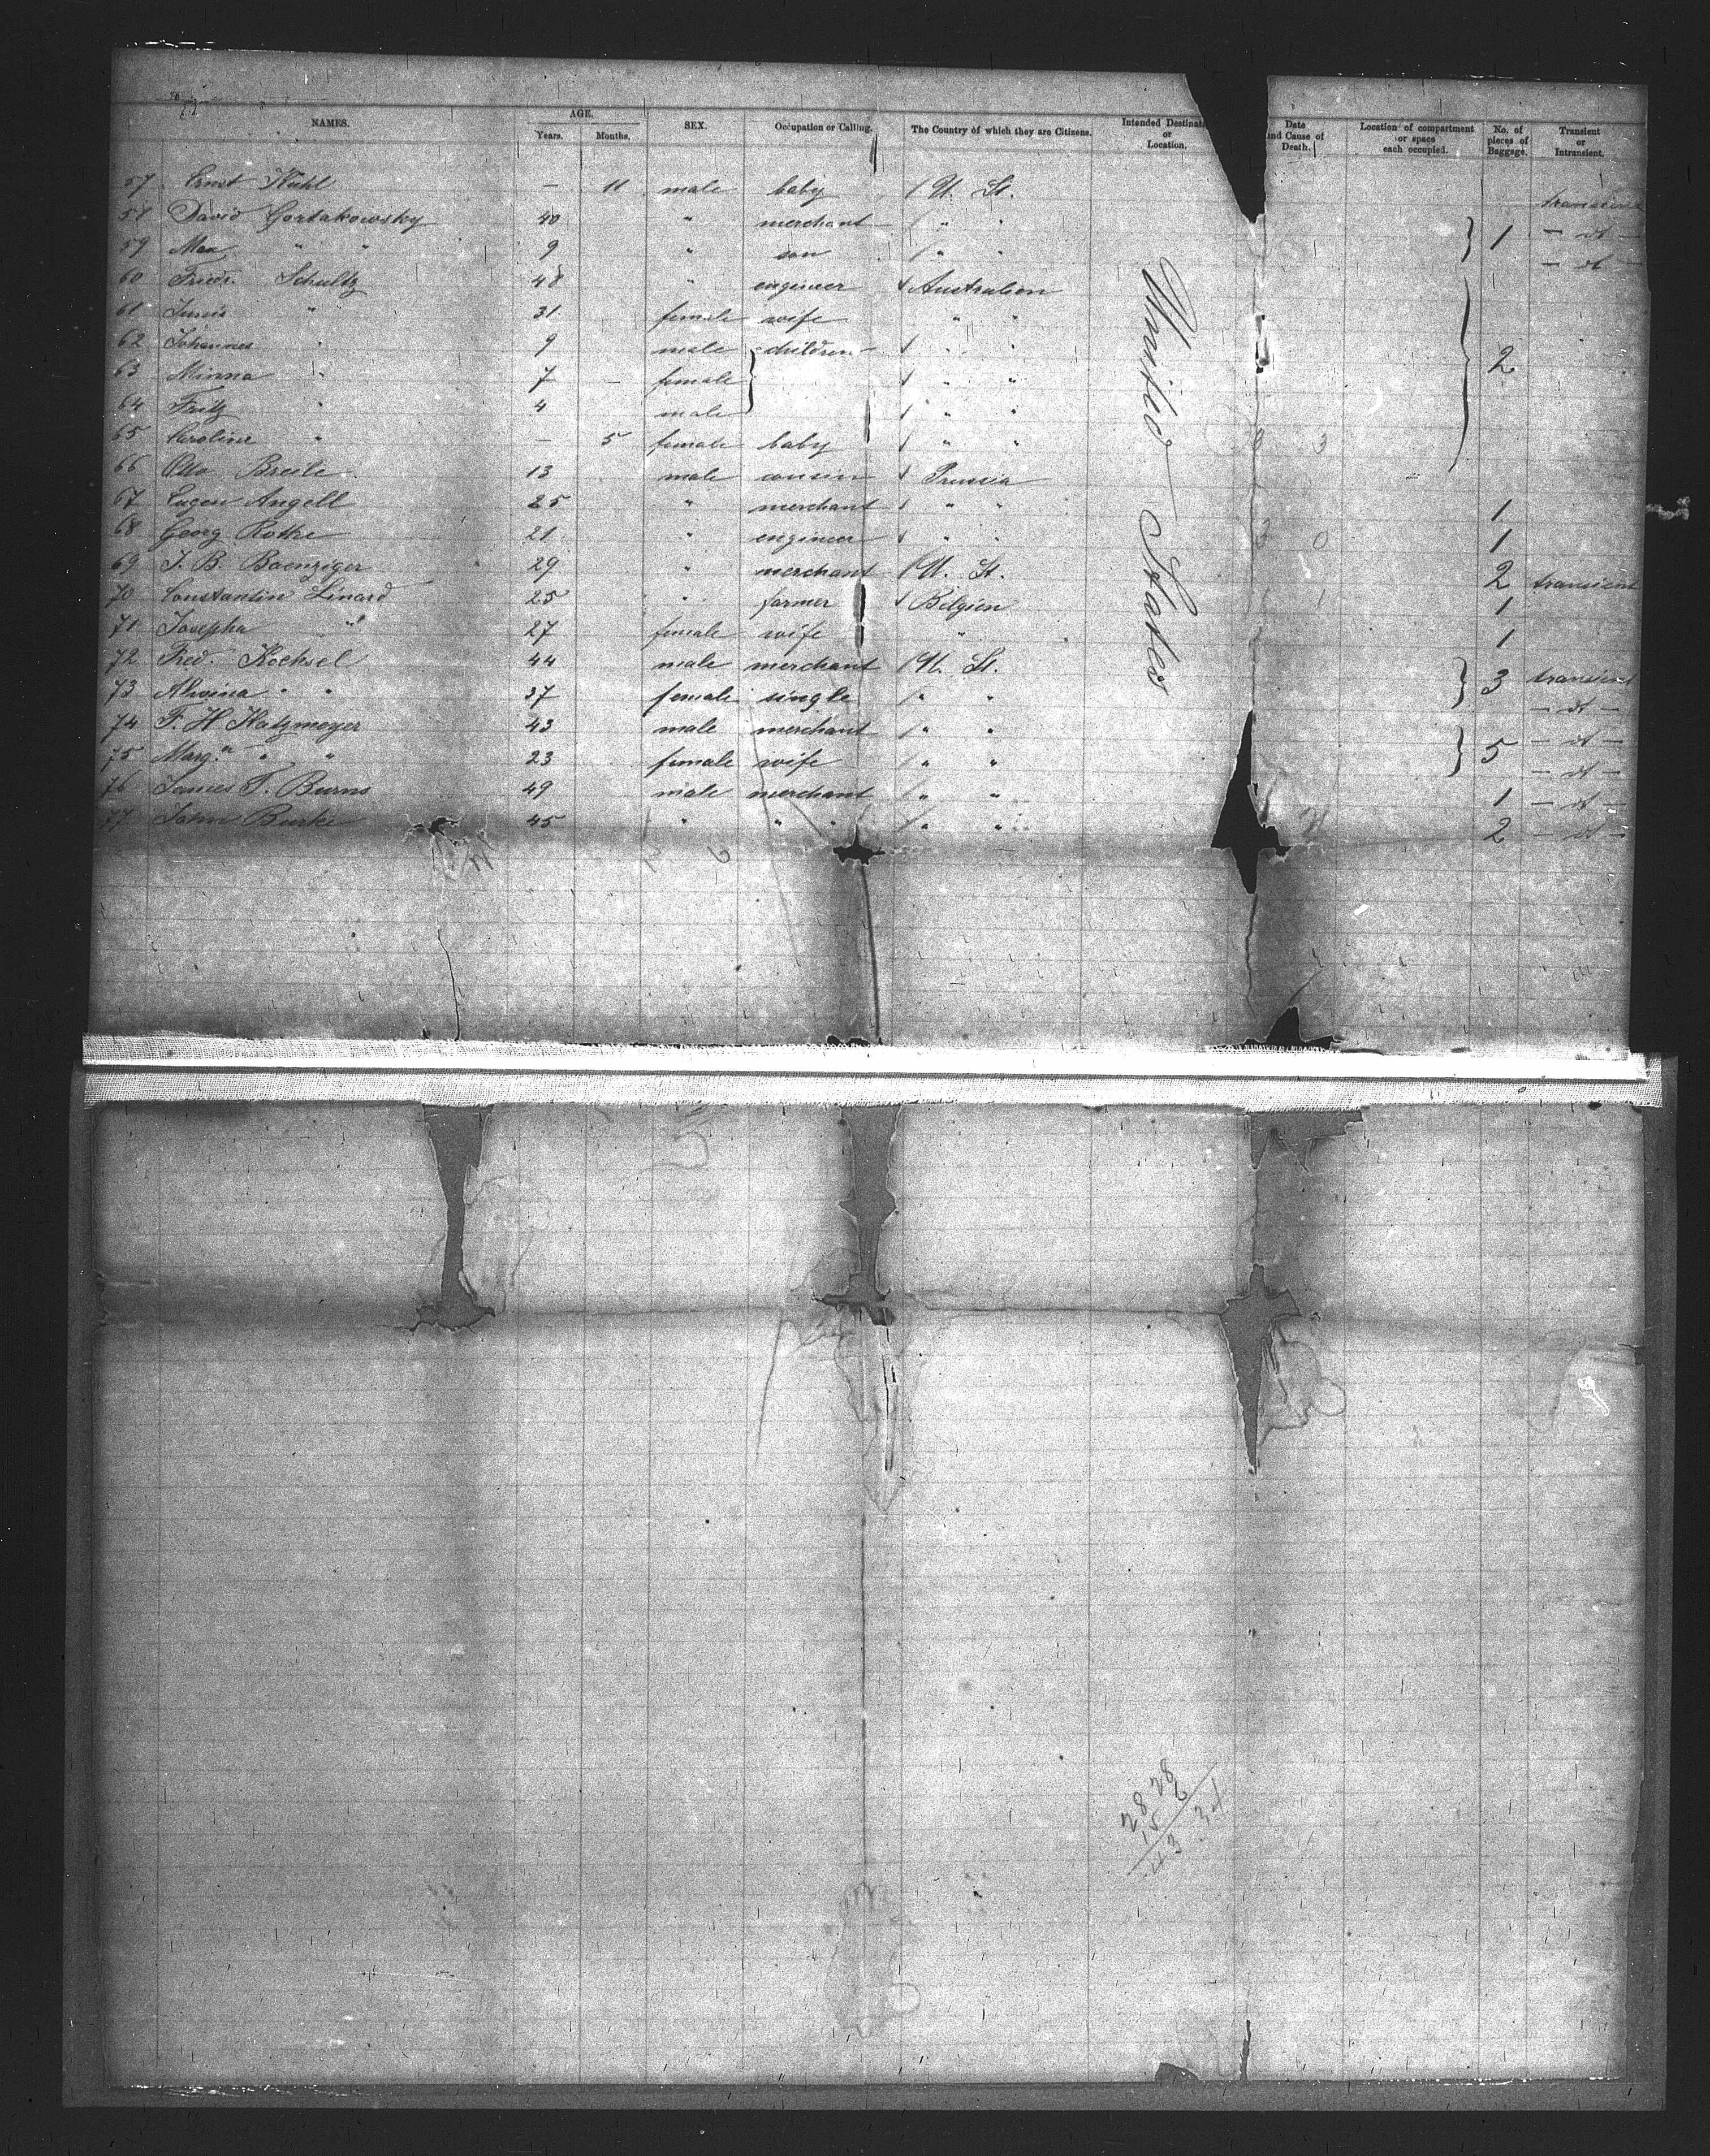 NAMES. AGE. Years. Months. SEX. Occupation or Calling. The Country of which they are Citizens. Intended Destinat or Location. Date nd Cause of Death. Location of compartment or space each occupied. No. of pieces of Baggage. Transient or Intransient.
57 Ernst Kühl — 11 male baby U. St. transient
58 David Gortakowsky 40 " merchant " " 1 — dt —
59 Max " " 9 " son " " — dt —
60 Friedr. Schultz 48 " engineer Australien
61 " 31 female wife " "
62 Johannes " 9 male children " "
63 Minna " 7 — female " " 2
64 Fritz " 4 male " "
65 Caroline " — 5 female baby " "
66 Otto Breile 13 male cousin Prussia
67 Eugen Angell 25 " merchant " " 1
68 Georg Rothe 21 " engineer " " 1
69 J. B. Baenziger 29 " merchant U. St. 2 transient
70 Constantin Linard 25 " farmer Belgien 1
71 Josepha " 27 female wife " 1
72 Fred. Kochsel 44 male merchant U. St. 3 transient
73 Alwina " " 37 female single " " — dt —
74 F. H Hatzmeyer 43 male merchant " " — dt —
75 Marg. " " 23 female wife " " 5 — dt —
76 James T. Burns 49 male merchant " " 1 — dt —
77 John Burke 45 " " " " " 2 — dt —
United States
28 28
15 6
43 34